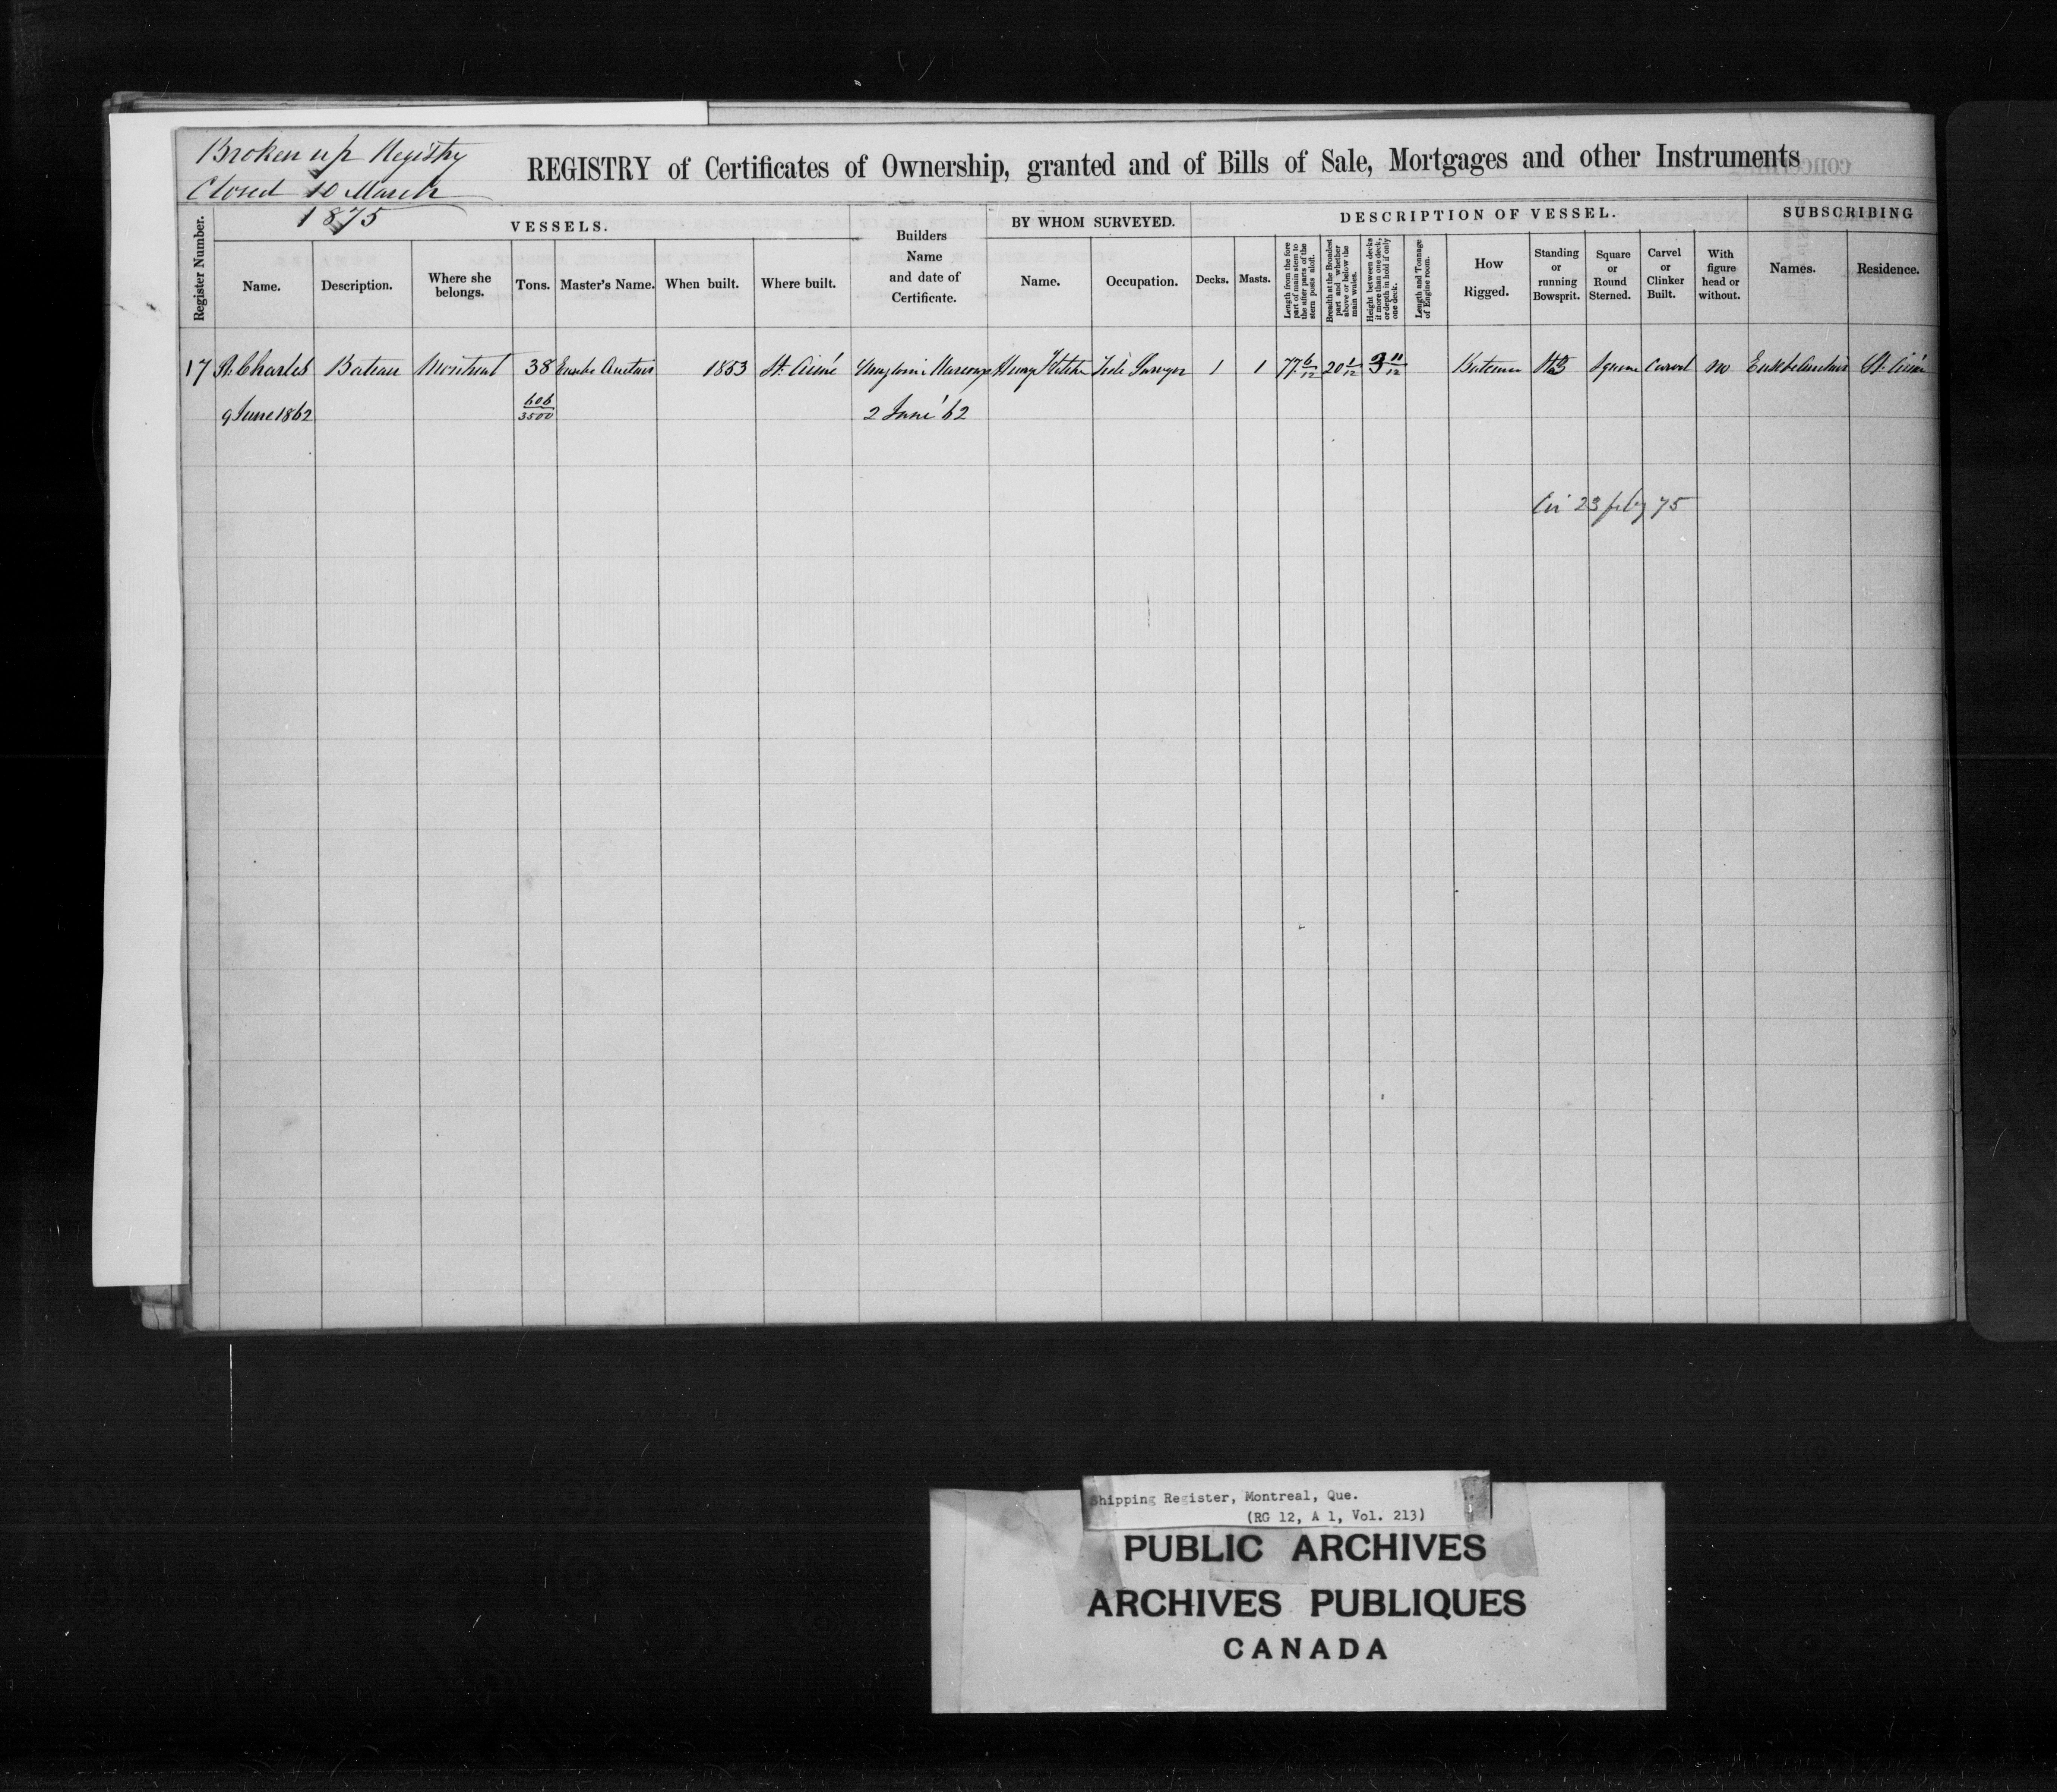 Broken up Registry
Closed 10 March
1875
REGISTRY of Certificates of Ownership, granted and of Bills of Sale, Mortgages and other Instruments
Register Number.
VESSELS.
Name.
Description.
Where she
belongs.
Tons.
Master's Name.
When built.
Where built.
Builders
Name
and date of
Certificate.
BY WHOM SURVEYED.
Name.
Occupation.
DESCRIPTION OF VESSEL.
Decks.
Masts.
Length from the fore
part of main stem to
the after parts of the
stern posts aloft.
Breadth at the Broadest
part and whether
above or below the
main wales.
Height between decks
if more than one deck,
or depth in hold if only
one deck.
Length and Tonnage
of Engine room.
How
Rigged.
Standing
or
running
Bowsprit.
Square
or
Round
Sterned.
Carvel
or
Clinker
Built.
With
figure
head or
without.
SUBSCRIBING
Names.
Residence.
17 St. Charles Bateau Montreal 38 1853 St. Aimé Henry Tide Surveyor 1 1 77 6/12 20 1/12 3 11/12 Bateau Square Carvel no St. Aimé
9 June 1862 606/3500 2 June '62
23 feby 75
Shipping Register, Montreal, Que.
(RG 12, A 1, Vol. 213)
PUBLIC ARCHIVES
ARCHIVES PUBLIQUES
CANADA